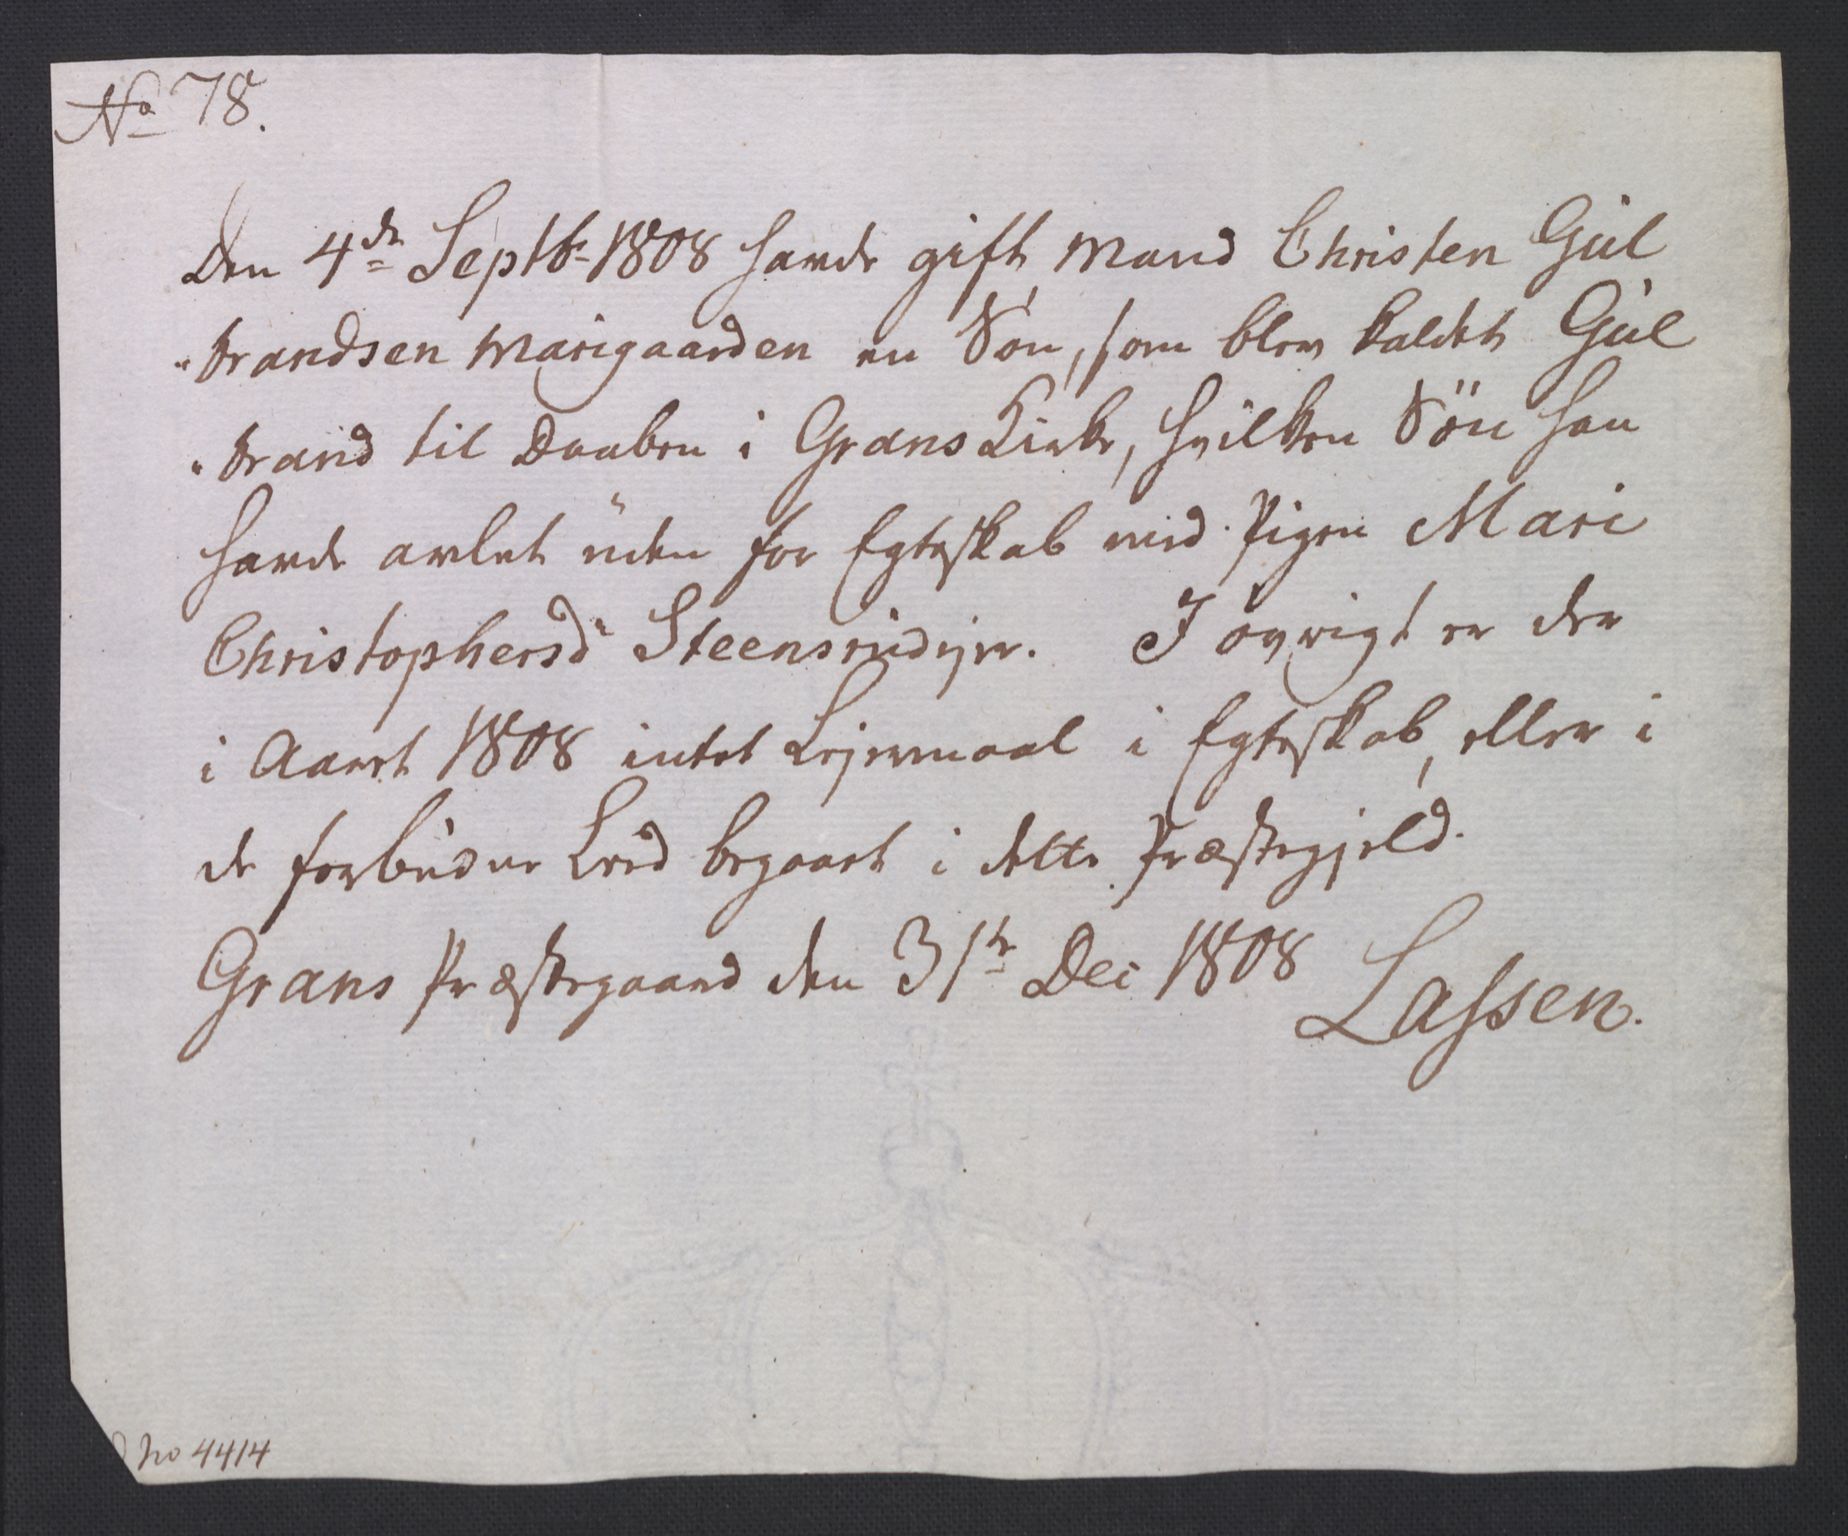 No 78.
Den 4de Septb 1808 havde gift Mand Christen Gul
"brandsen Marigaarden en Søn, som blev kaldet Gul
"brand til Daaben i Grans Kirke, hvilken Søn han
havde avlet uden for Egteskab med Pigen Mari
Christophersd Steensrudejer. I øvrigt er der
i Aaret 1808 intet Lejermaal i Egteskab, eller i
de forbudne Leed begaaet i dette Præstegjeld.
Grans Præstegaard den 31te Dec 1808 Lassen.
No 4414